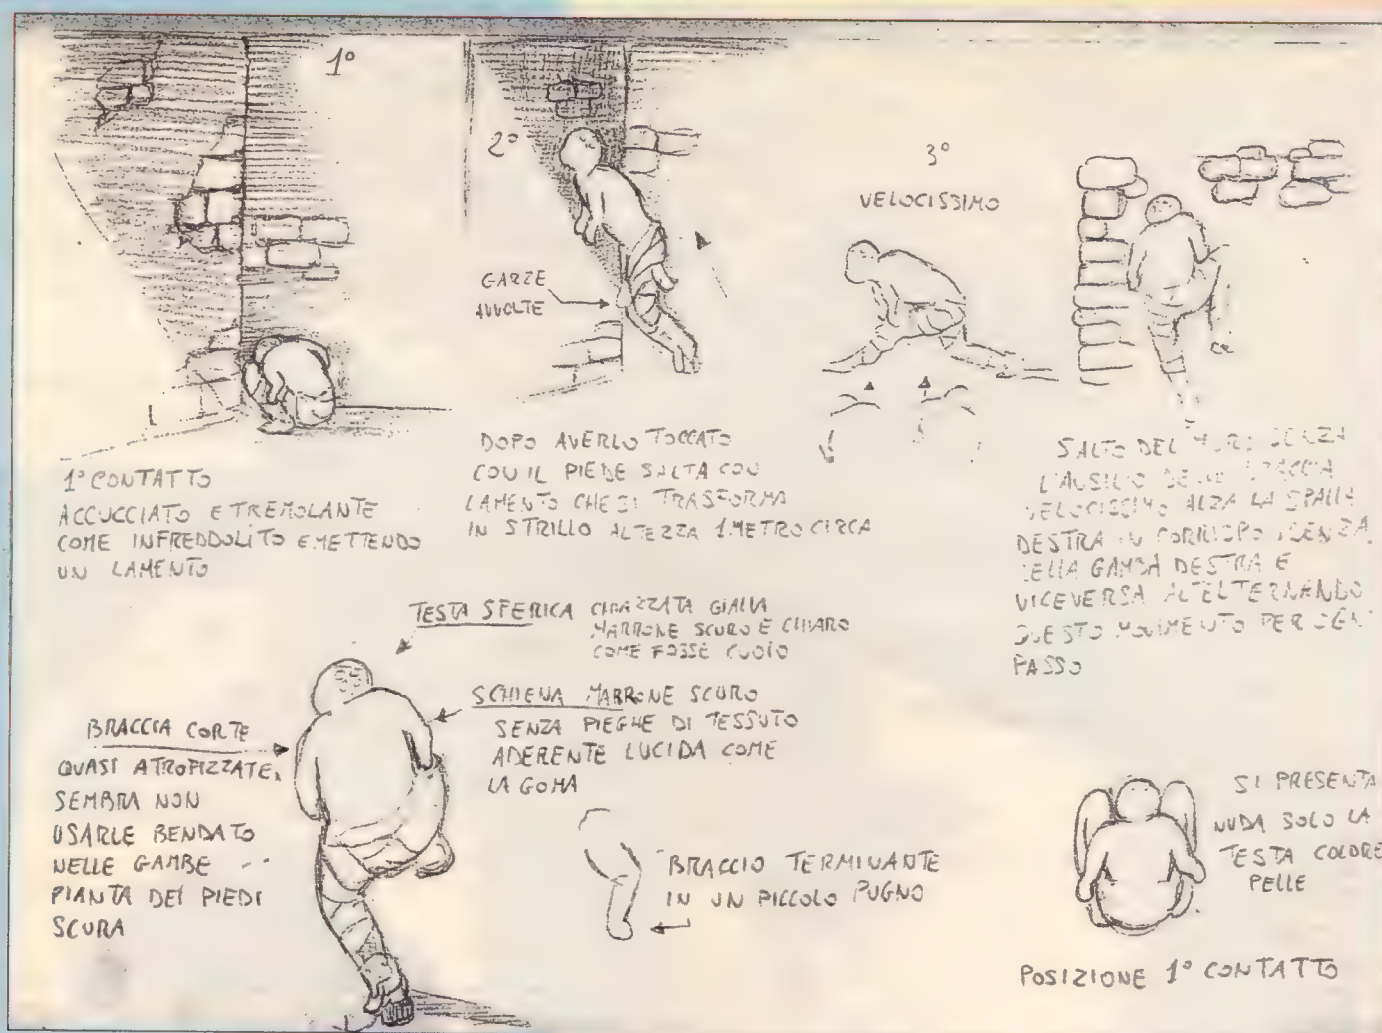 1°
2°
3°
VELOCISSIMO
GARZE
AVVOLTE
1° CONTATTO
ACCUCCIATO E TREMOLANTE
COME INFREDDOLITO EMETTENDO
UN LAMENTO
DOPO AVERLO TOCCATO
CON IL PIEDE SALTA CON
LAMENTO CHE SI TRASFORMA
IN STRILLO ALTEZZA 1 METRO CIRCA
SALTO DEL MURO SENZA
L'AUSILIO DELLE BRACCIA
VELOCISSIMO ALZA LA SPALLA
DESTRA IN
DELLA GAMBA DESTRA E
VICEVERSA
QUESTO MOVIMENTO PER OGNI
PASSO
TESTA SFERICA CHIAZZATA GIALLA
MARRONE SCURO E CHIARO
COME FOSSE CUOIO
SCHIENA MARRONE SCURO
SENZA PIEGHE DI TESSUTO
ADERENTE LUCIDA COME
LA GOMA
BRACCIA CORTE
QUASI ATROFIZZATE,
SEMBRA NON
USARLE BENDATO
NELLE GAMBE
PIANTA DEI PIEDI
SCURA
BRACCIO TERMINANTE
IN UN PICCOLO PUGNO
SI PRESENTA
NUDA SOLO LA
TESTA COLORE
PELLE
POSIZIONE 1° CONTATTO